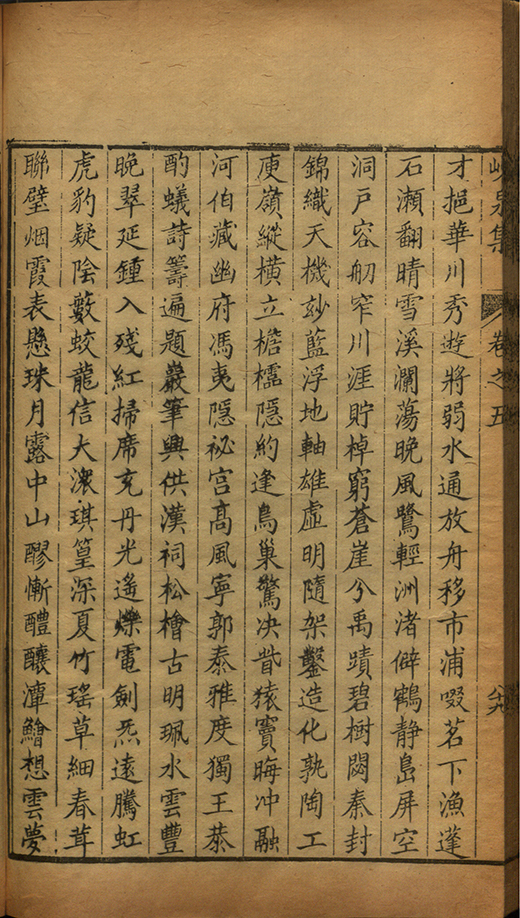 峴泉集 卷之五
才挹華川秀遊將弱水通放舟移市浦啜茗下漁蓬
石瀨翻晴雪溪瀾蕩晚風鷺輕洲渚僻鶴静島屏空
洞戸容舠窄川涯貯棹窮蒼崖兮禹蹟碧樹閟秦封
錦織天機玅藍浮地軸雄虛明隨架鑿造化孰陶工
庾嶺縱橫立檐櫺隱約逢鳥巢驚决眥猿竇晦冲融
河伯藏幽府馮夷隱祕宫高風寧郭泰雅度獨王恭
酌蟻詩籌遍題巖筆興供漢祠松檜古明珮水雲豐
晩翠延鍾入殘紅掃席充丹光遙爍電劍炁遠騰虹
虎豹疑陰藪蛟龍信大瀤琪篁深夏竹瑤草細春茸
聮璧烟霞表懸珠月露中山醪慚醴釀潭鱠想雲夢